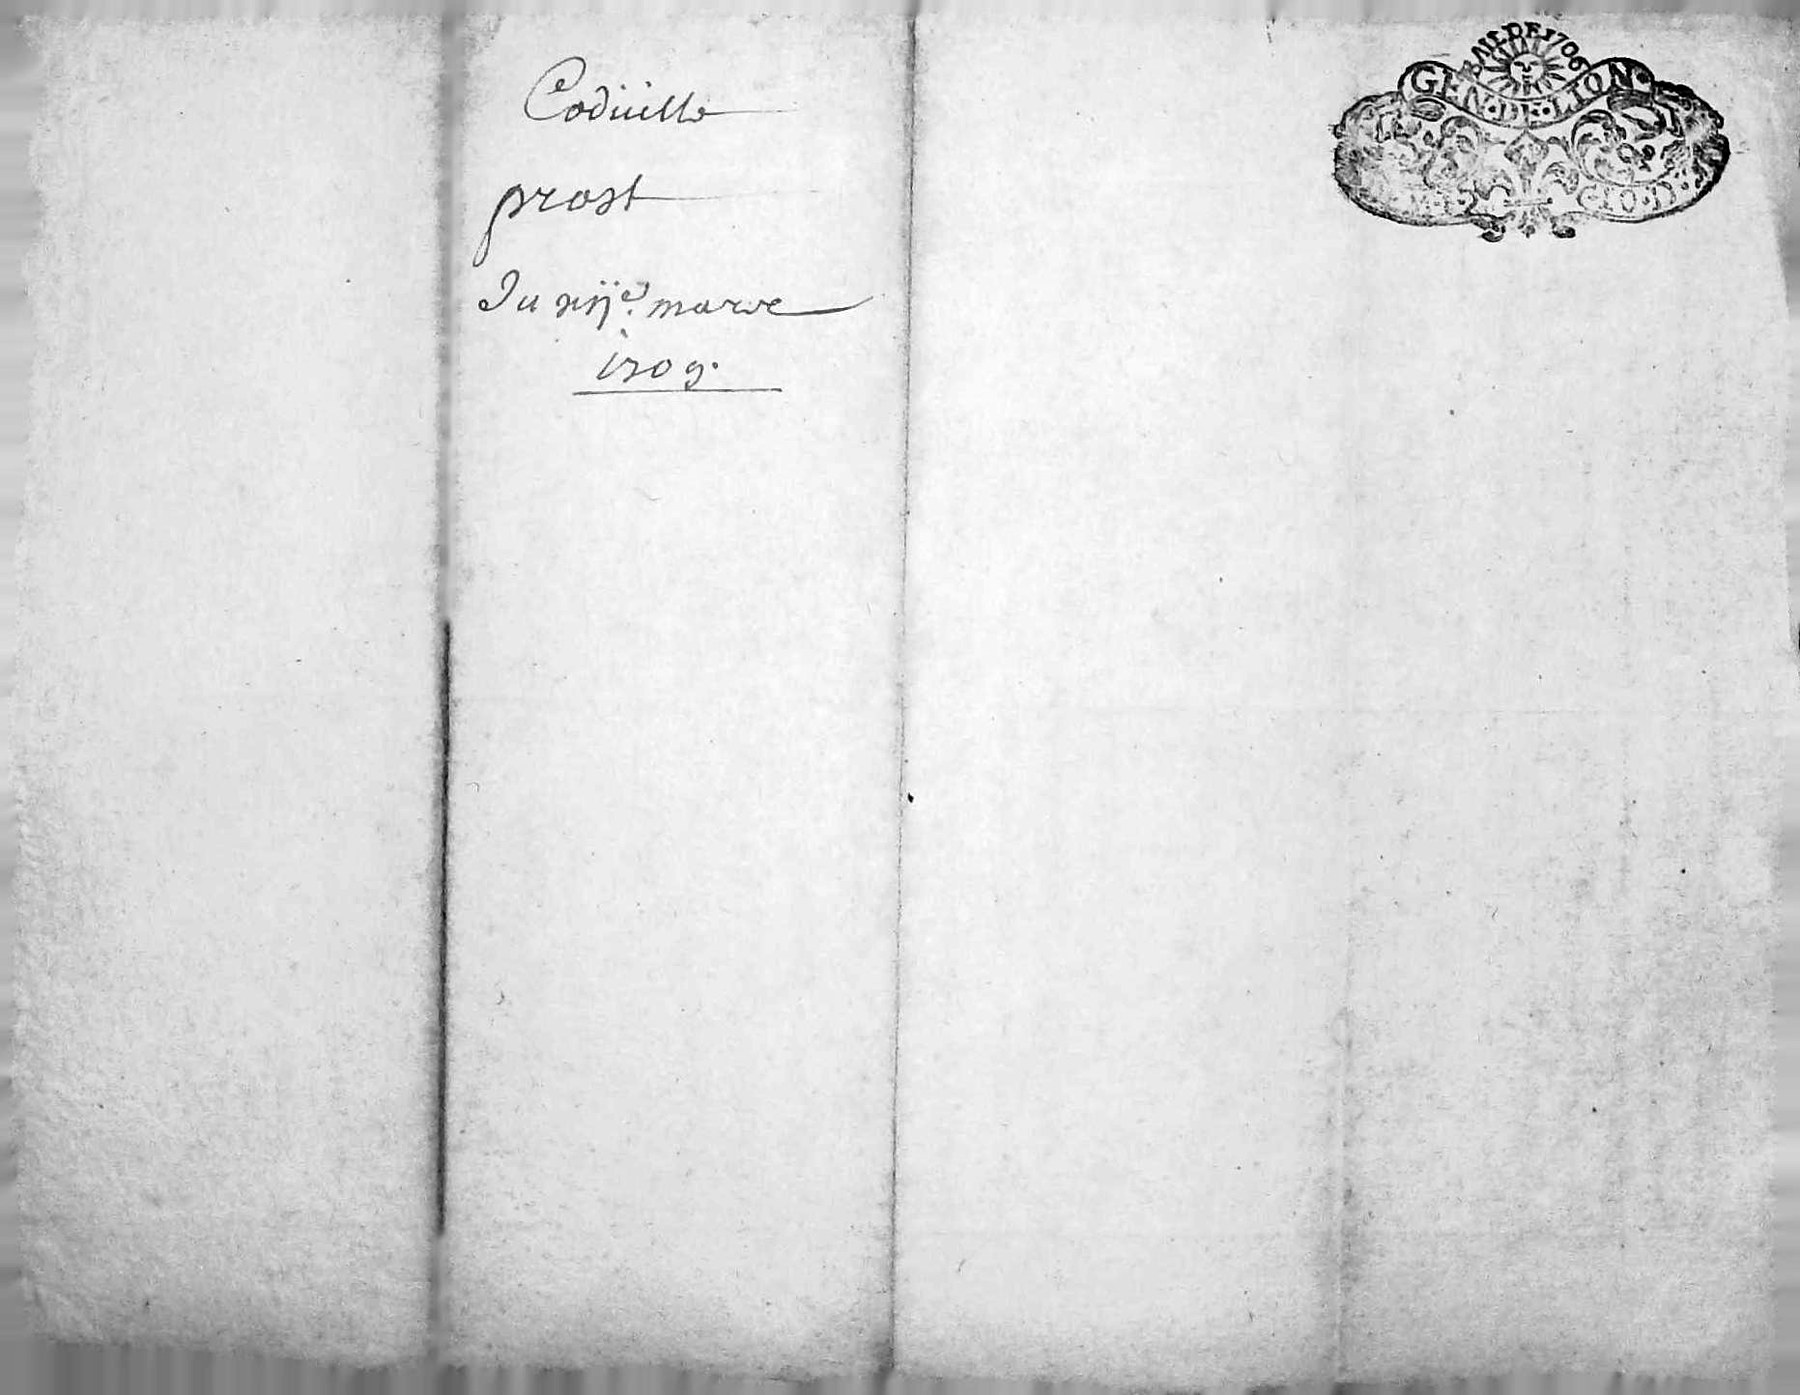 Codicille
prost
Du xiije. mars
1709.
BAIL DE 1706
GEN·DE·LION·